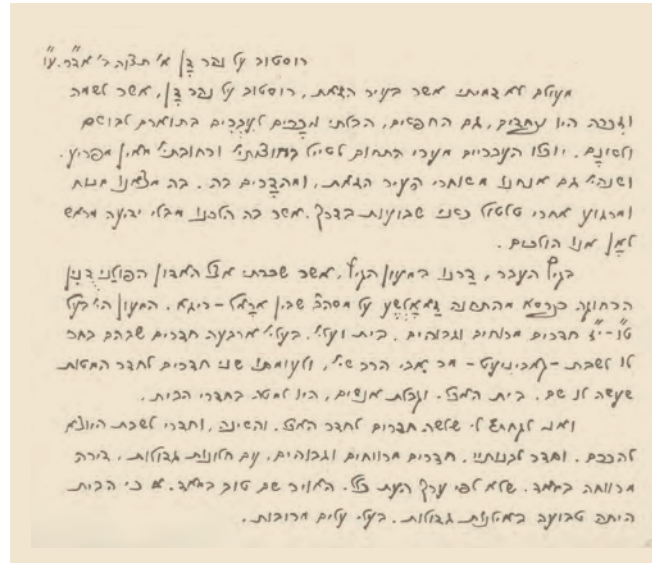 רוסטוב על נהר דָן א׳ תצוה ב׳ אד״ר. ע״ו
מעולם לא דמיתי אשר בעיר הזאת, רוסטוב על נהר דָן, אשר לשמה
היו נחרדים, גם החפשים, הבלתי נִכָּרים לעִבְרִים בתוארם לבושם
ולשונָם. יוצאו העבריים מערי התחום לטייל בחוצותי׳ ורחובתי׳ מאין מפריע.
ושנהי׳ גם אנחנו משוחרי העיר הזאת, ומהדָרים בה. בה מצאנו מנוח
ומרגוע אחרי טלטול כשני שבועות בדרך. אשר בה הלכנו מבלי ידיעה מראש
לאָן אנו הולכים.
בקיץ העבר, דַרנו במעון הקיץ, אשר שכרתי אצל האדון הפולַני
הרחוקה מהתחנה על מסה״ב שבין אָרָאל – ריגא. המעון הי׳ בעל
ט״ו – י״ז חדרים מרוחים וגבוהים. בית ועלי׳. בעלי׳ ארבעה חדרים שבהם בחר
לו לשבת – קאבינעט – מר אבי הרב שי׳, ולעומתו שני חדרים לחדר המטות
שעשה לו שם. בית האכל. וקבלת אנשים, היו למטה בחדרי הבית.
ואני לקחתי לי שלשה חדרים לחדר האכל. והשינה, וחדרי לשבת היוצא
להרבם. וחדר לבנותיי. חדרים מרווחים וגבוהים, עם חלונות גדולות. דירה
מרווחה במאד. שלא לפי ערך העת כלל. האויר שם טוב במאד. כי הבית
היתה טבועה באילנות גדולות. בעלי עלים מרובות.